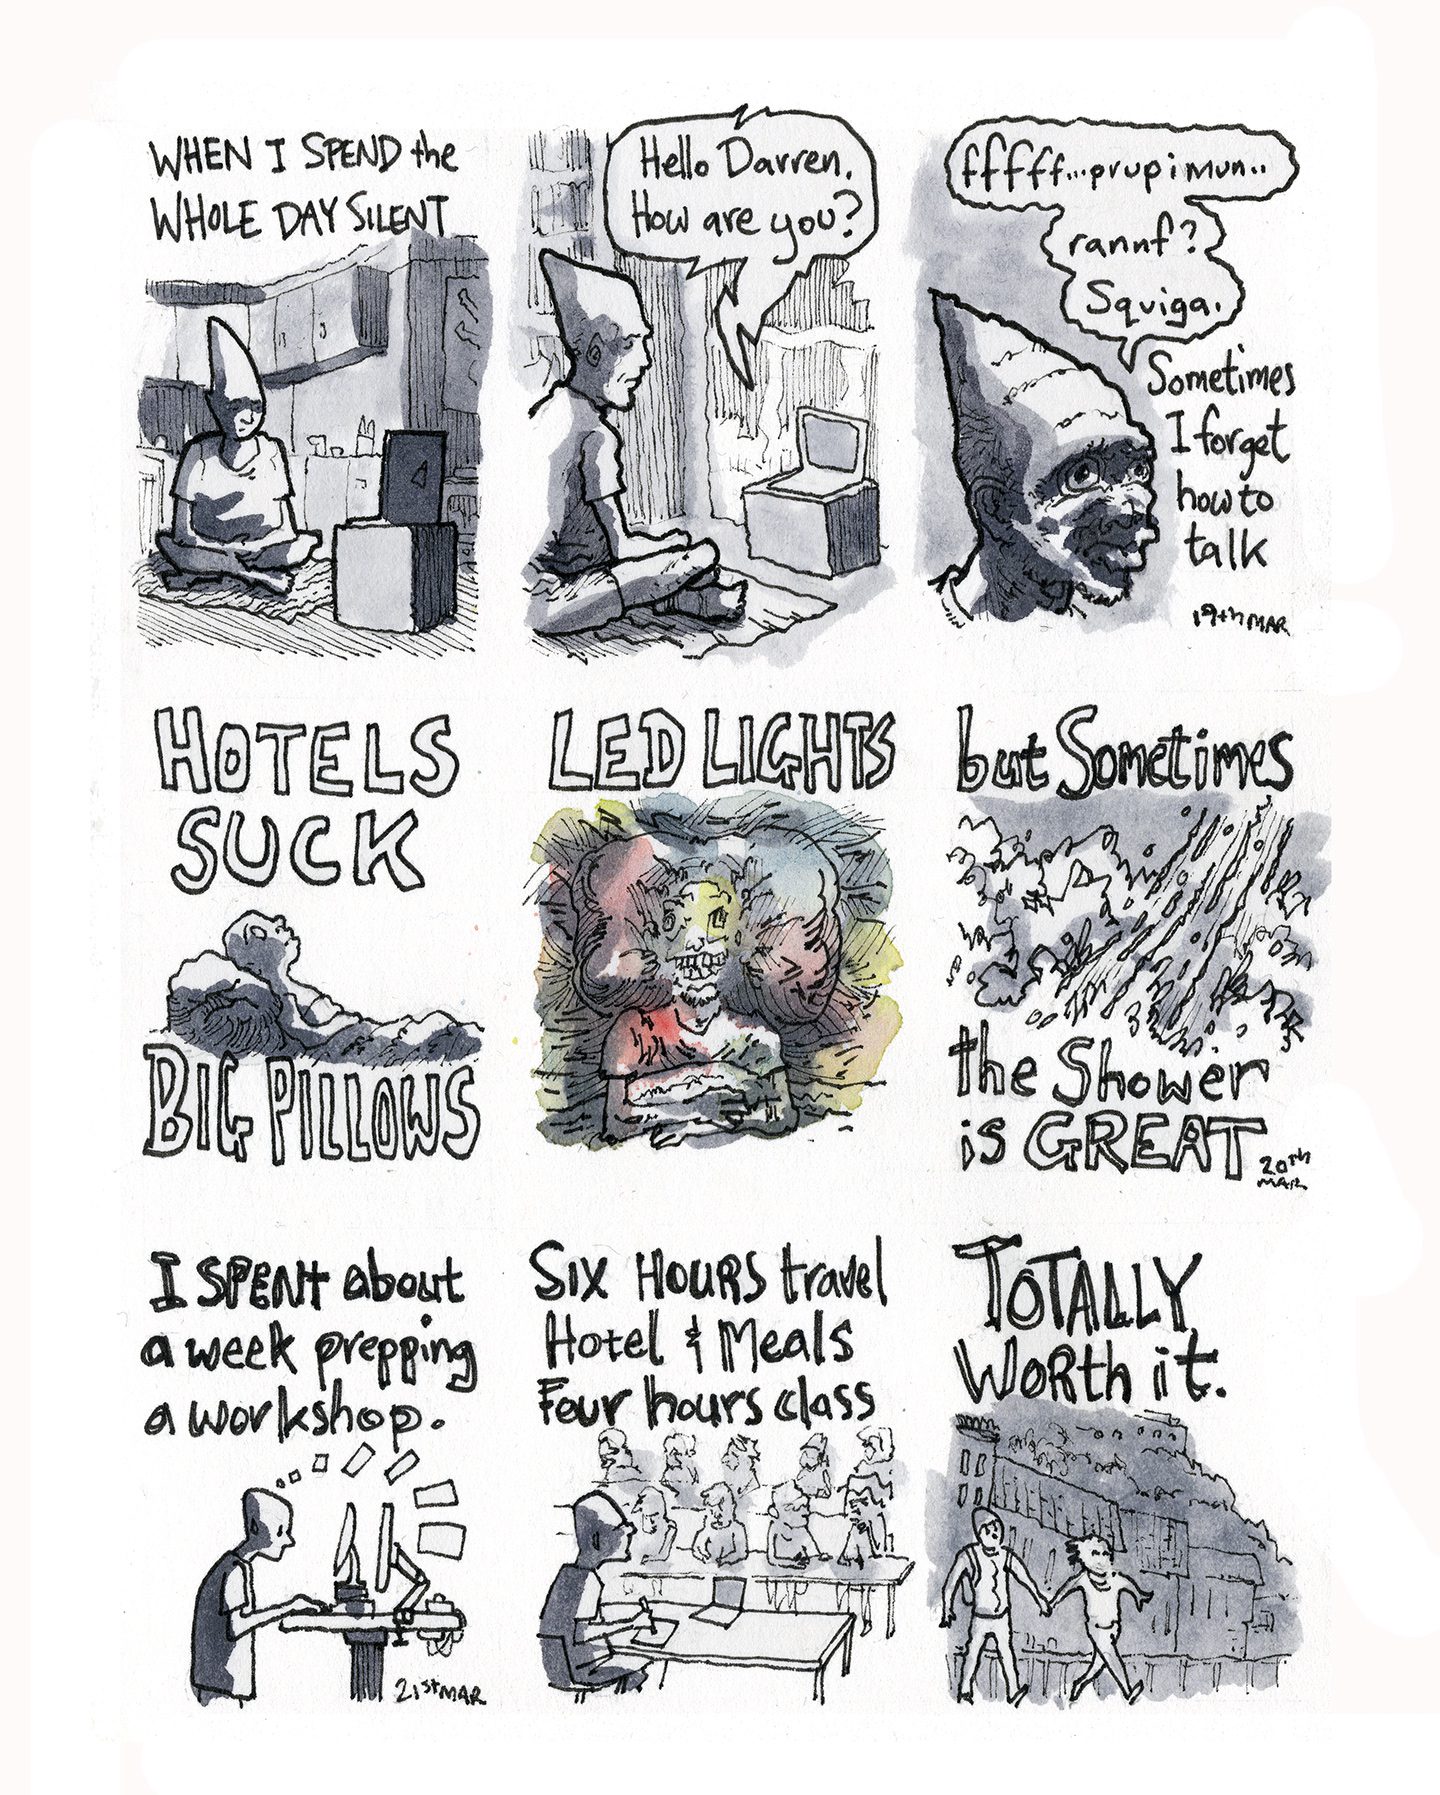 WHEN I SPEND the
WHOLE DAY SILENT
Hello Darren.
How are you?
ffffff...prupimun..
rannf?
Squiga.
Sometimes
I forget
how to
talk
19th MAR
HOTELS
SUCK
BIG PILLOWS
LED LIGHTS
but Sometimes
the Shower
is GREAT
20TH
MAR
I SPENt about
a week prepping
a workshop.
21st MAR
SIX HOURS travel
Hotel & Meals
Four hours class
TOTALLY
WORth it.